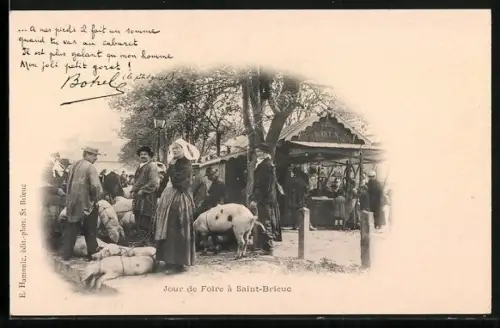 ... A nes pieds il fait un somme
Quand tu vas au cabaret
Il est plus galant qu' mon homme
Mon joli petit goret !
Botrel
Jour de Foire à Saint-Brieuc
E. Hamonic, édit.-phot. St Brieuc